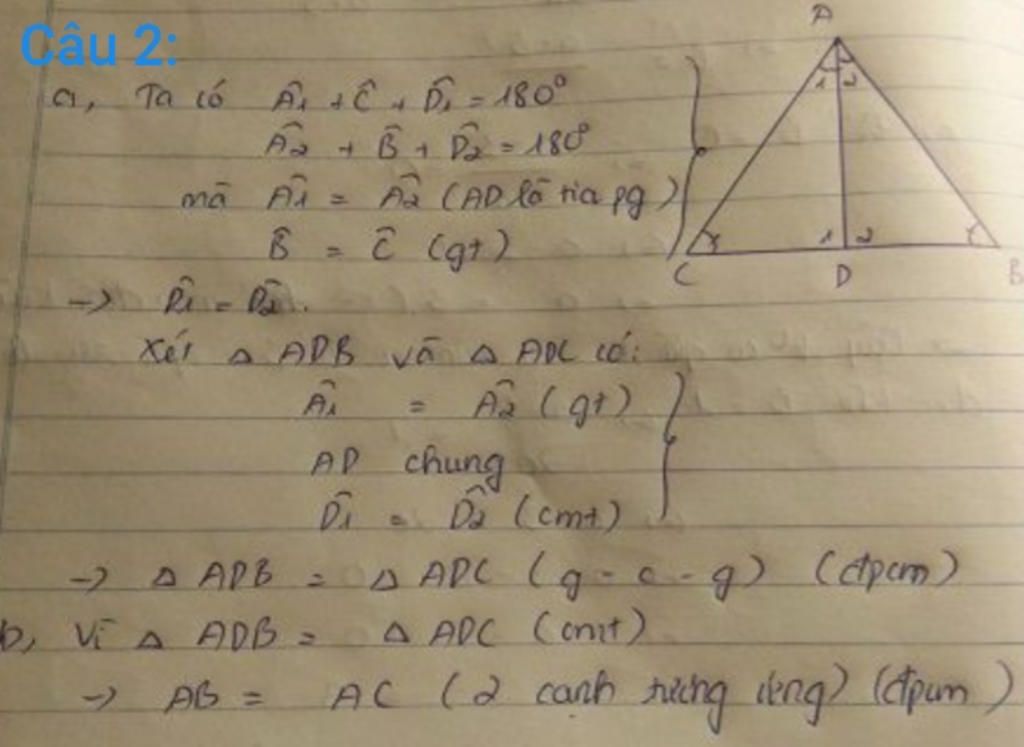 Câu 2:
a, Ta có Â1 + Ĉ + D̂1 = 180°
Â2 + B̂ + D̂2 = 180°
mà Â1 = Â2 (AD là tia pg)
B̂ = Ĉ (gt)
-> D̂1 = D̂2.
Xét △ ADB và △ ADC có:
Â1 = Â2 (gt)
AD chung
D̂1 = D̂2 (cmt)
-> △ ADB = △ ADC (g - c - g) (đpcm)
b, Vì △ ADB = △ ADC (cmt)
-> AB = AC (2 cạnh tương ứng) (đpcm)
A
1 2
1 2
C D B